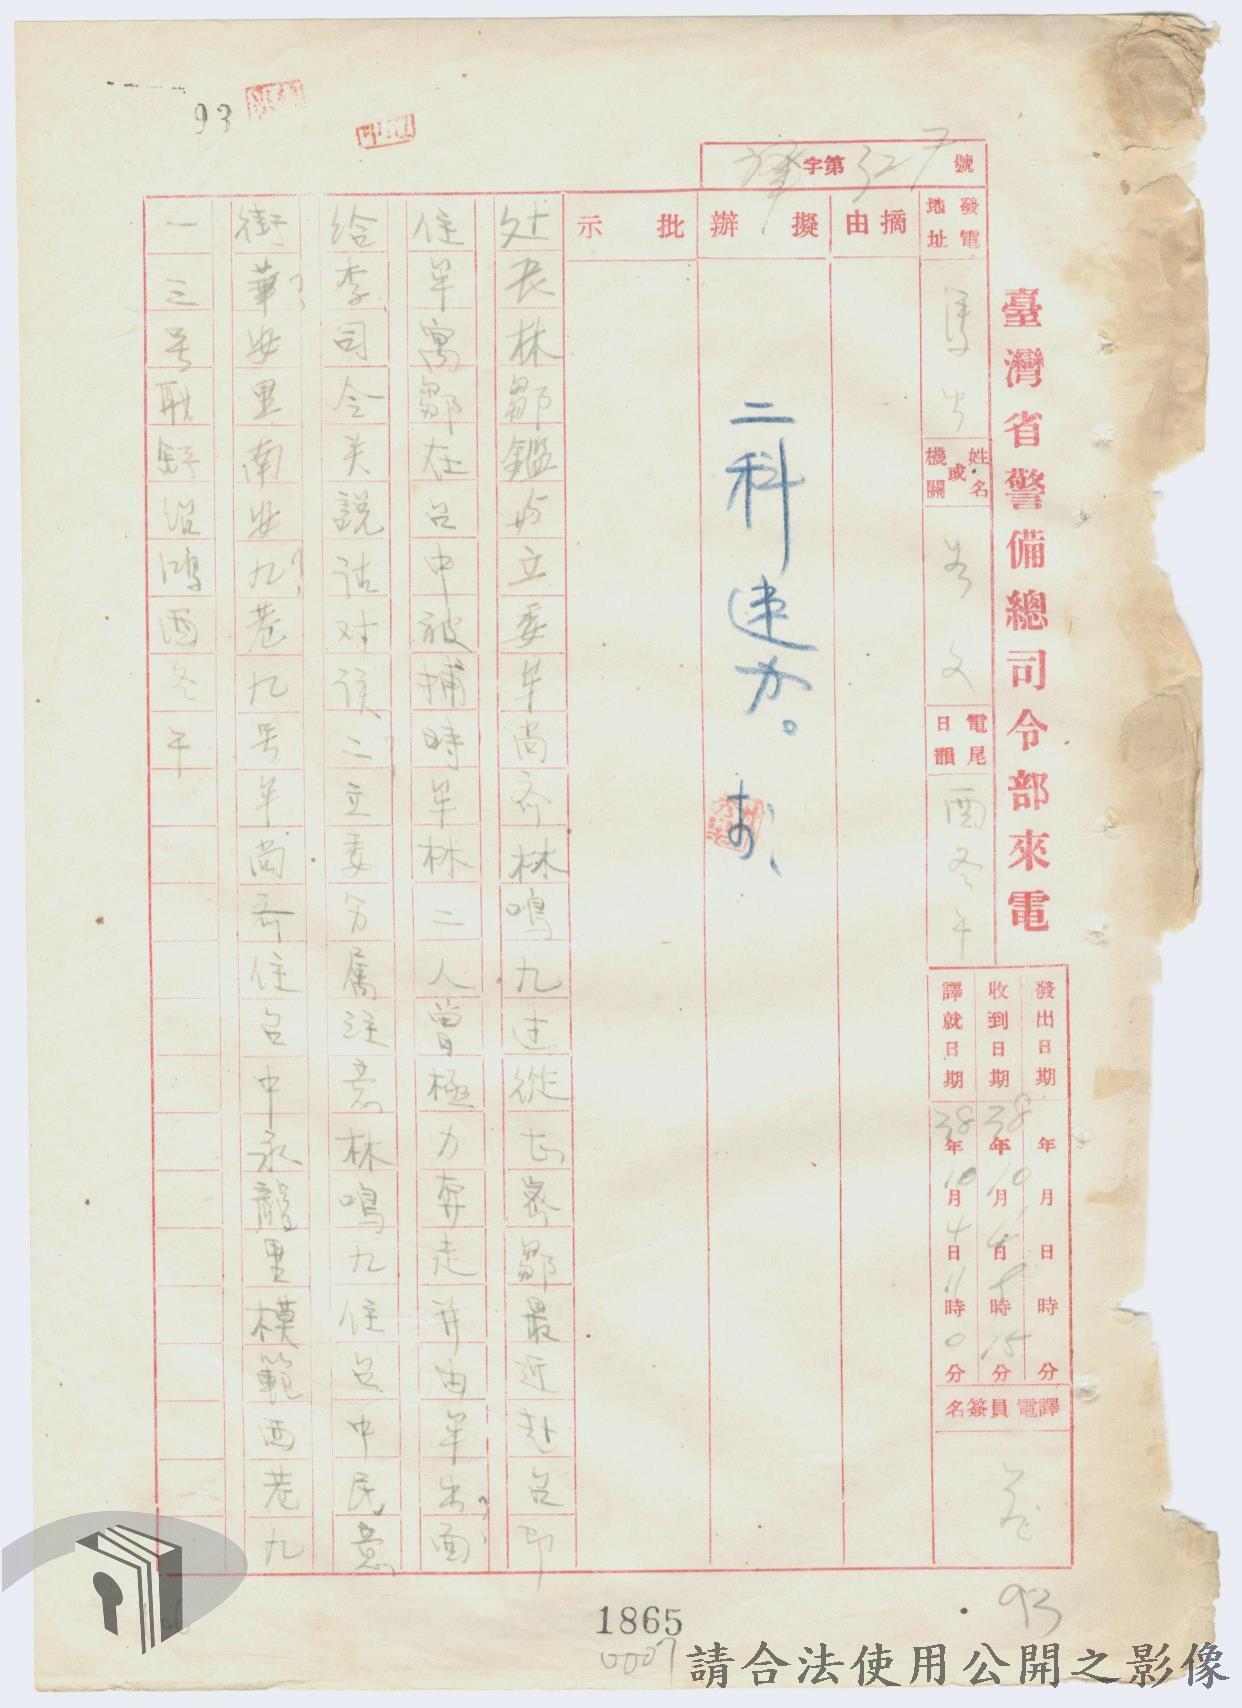 93
臺灣省警備總司令部來電
字第327號
發電地址
姓名或機關
電尾日韻 酉冬午
發出日期 年 月 日 時 分
收到日期 38年10月4日 時15分
譯就日期 38年10月4日11時0分
譯電員簽名
摘由
擬辦
二科速办。
批示
处長林鄒鑑与立委牟尚齐林鳴九过從甚密鄒最近赴台即
住牟寓鄒在台中被捕時牟林二人曾極力奔走并由牟出面
给李司令关說詁对该二立委分屬注意林鳴九住台中民意
街華安里南安九巷九号牟尚斋住台中永龍里模範西巷九
一三号耿舒绍鴻酉冬午
93
1865
0007
請合法使用公開之影像